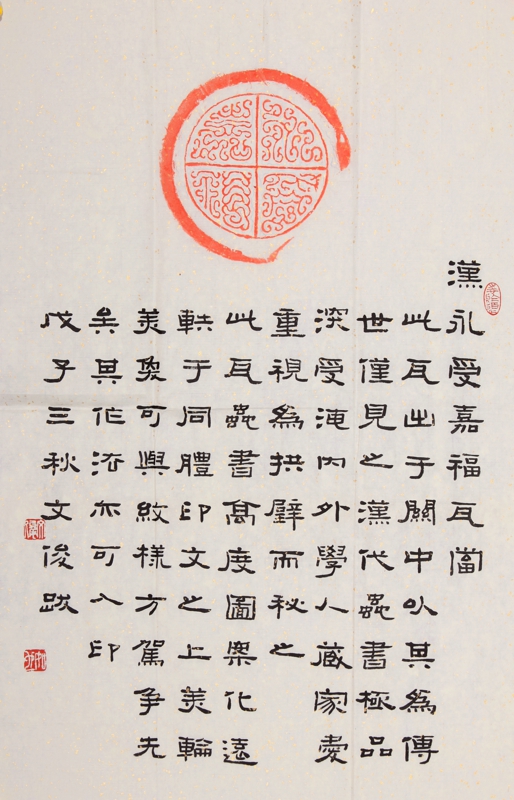 永受嘉福
漢永受嘉福瓦當
此瓦出于關中以其為傳
世僅見之漢代蟲書極品
深受海内外學人藏家愛
重視為拱璧而秘之
此瓦蟲書高度圖案化遠
軼于同體印文之上美輪
美奐可與紋樣方駕爭先
矣其作法亦可入印
戊子三秋文俊跋